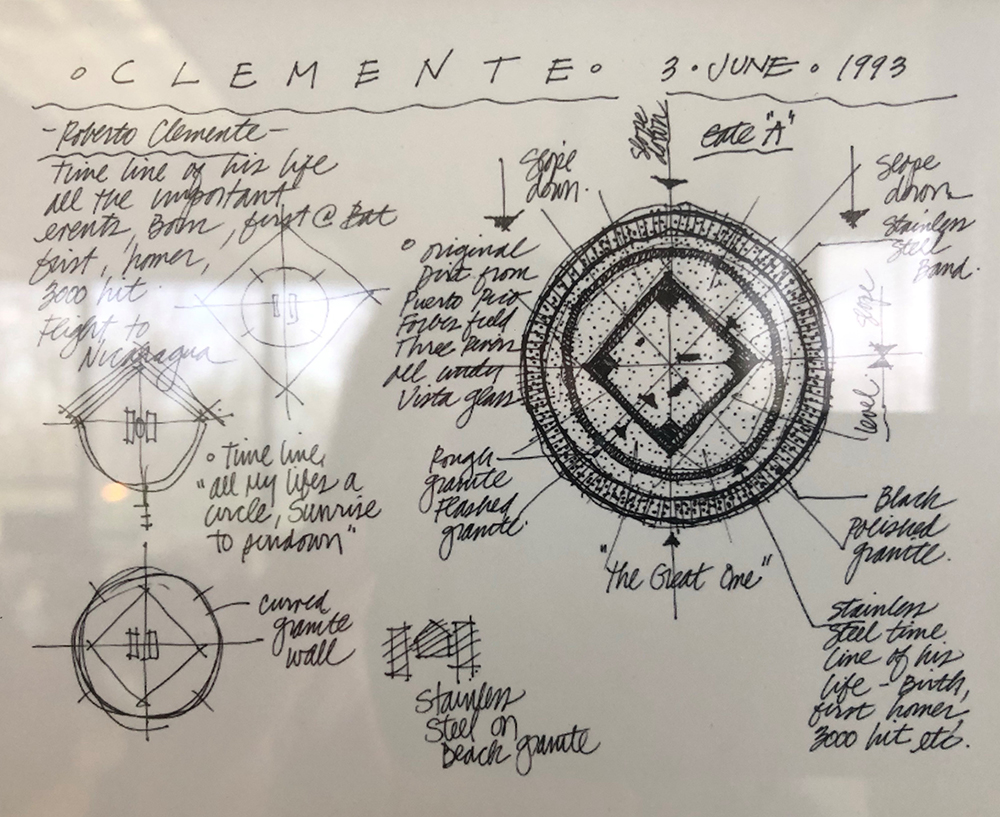 ° C L E M E N T E °
3 · JUNE · 1993
- Roberto Clemente -
Time line of his life
all the important
events, Born, first @ Bat
first, homer,
3000 hit.
Flight to
Nicaragua
Slope
down.
Slope
down
Gate "A"
Slope
down
Stainless
Steel
Band.
° original
Dirt from
Puerto Rico
Forbes field
Three Rivers
all under
Vista glass
slope
level
° Time line,
"all My lifes a
circle, Sunrise
to sundown"
Rough
granite
Flashed
granite.
Black
polished
granite.
"The Great One"
curved
granite
wall
Stainless
Steel time
line of his
life - Birth,
first homer,
3000 hit etc.
Stainless
Steel on
Beach granite